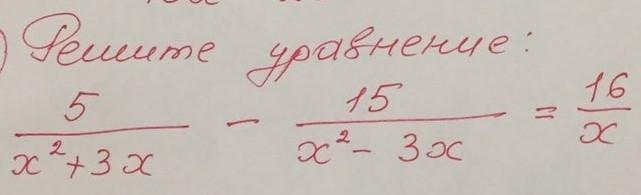 ) Решите уравнение:
5/(x²+3x) - 15/(x²-3x) = 16/x